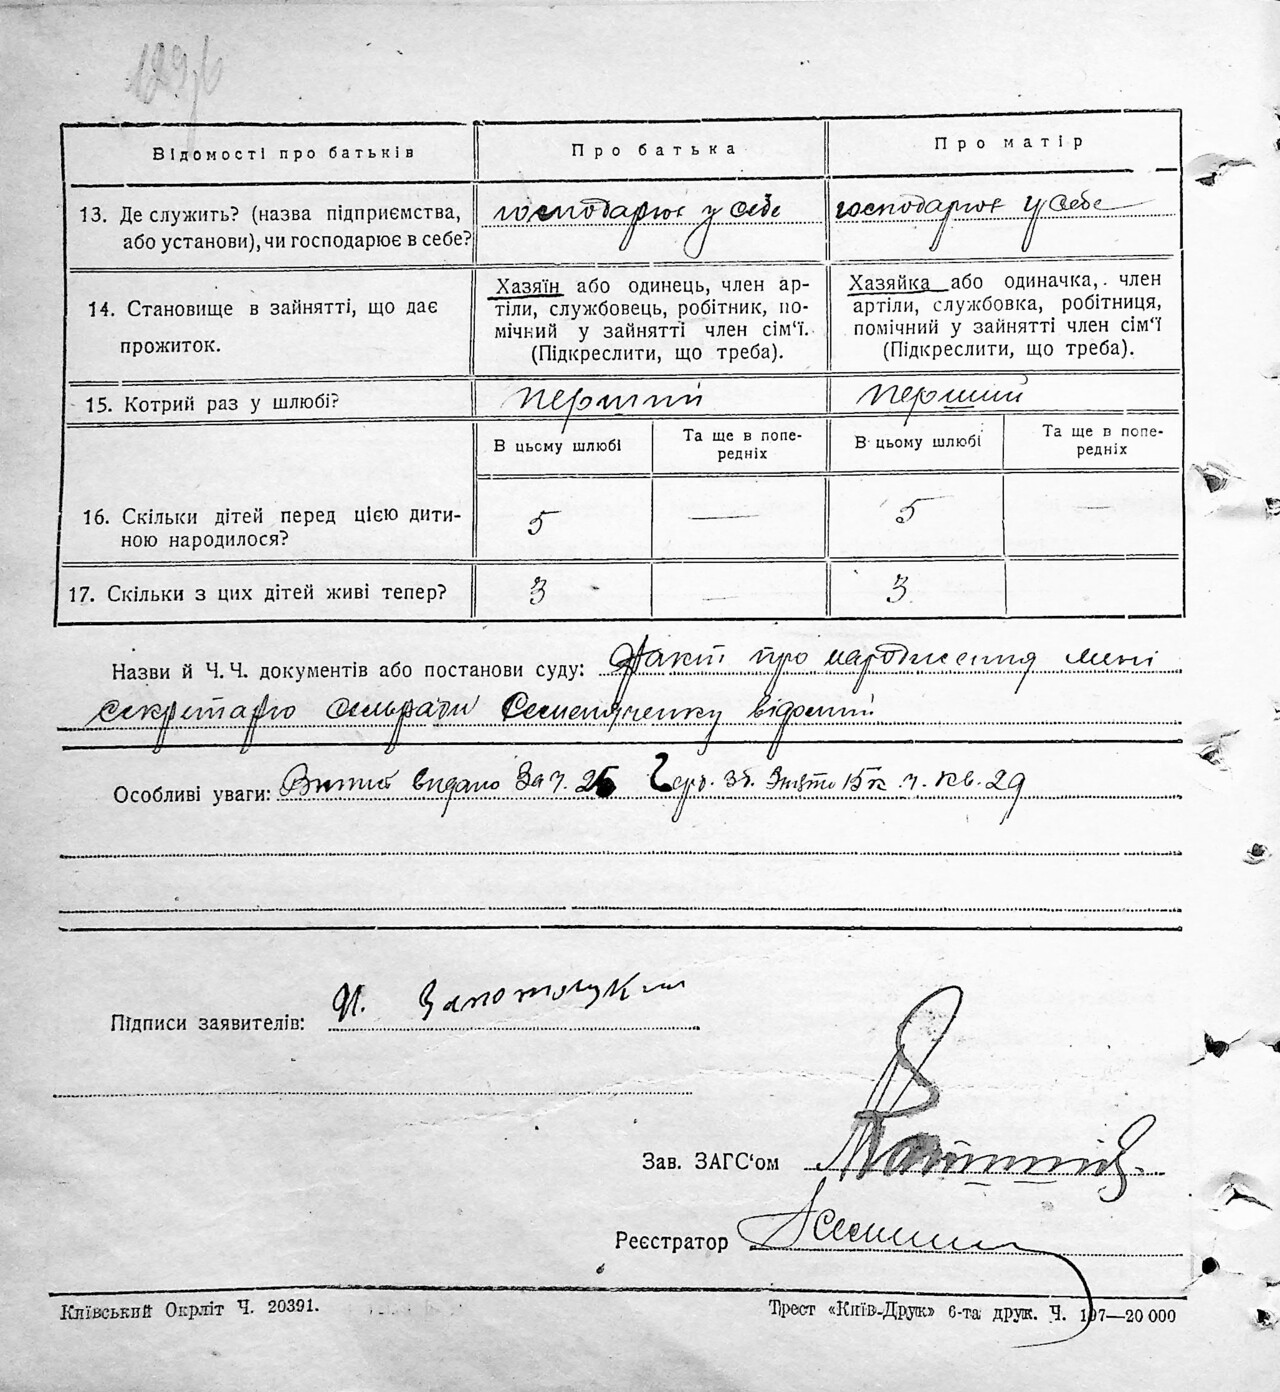 Відомості про батьків
Про батька
Про матір
13. Де служить? (назва підприємства,
або установи), чи господарює в себе?
господарює у себе
господарює у себе
14. Становище в зайнятті, що дає
прожиток.
Хазяїн або одинець, член ар-
тіли, службовець, робітник, по-
мічний у зайнятті член сім‘ї.
(Підкреслити, що треба).
Хазяйка або одиначка, член
артіли, службовка, робітниця,
помічний у зайнятті член сім‘ї
(Підкреслити, що треба).
15. Котрий раз у шлюбі?
перший
перший
В цьому шлюбі
Та ще в попе-
редніх
В цьому шлюбі
Та ще в попе-
редніх
16. Скільки дітей перед цією дити-
ною народилося?
5
—
5
—
17. Скільки з цих дітей живі тепер?
3
—
3
Назви й Ч. Ч. документів або постанови суду: Факт про народження мені
секретарю сельради відомий
Особливі уваги: видано За ч. 26
Підписи заявителів:
Зав. ЗАГС‘ом
Реєстратор
Київський Окрліт Ч. 20391.
Трест «Київ-Друк» 6-та друк. Ч. 197—20 000